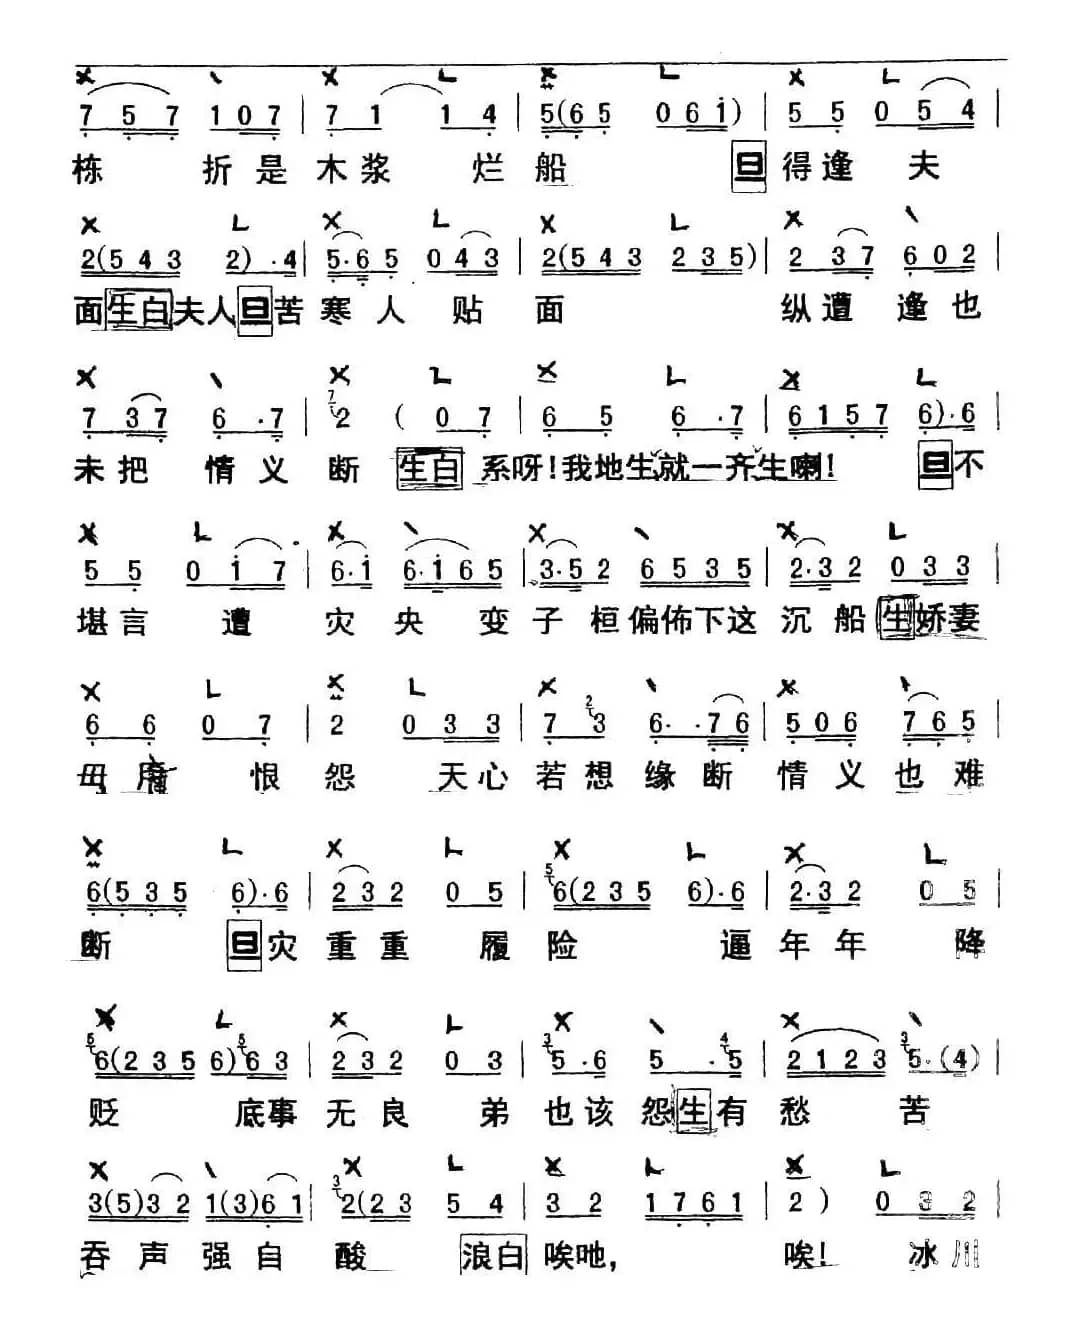 7 5 7 1 0 7 | 7 1 1 4 | 5(6 5 0 6 i) | 5 5 0 5 4 |
栋 折 是 木 浆 烂 船 旦 得 逢 夫
2(5 4 3 2)·4 | 5·6 5 0 4 3 | 2(5 4 3 2 3 5) | 2 3 7 6 0 2 |
面 生白 夫人 旦 苦 寒 人 贴 面 纵 遭 逢 也
7 3 7 6·7 | 2 ( 0 7 | 6 5 6·7 | 6 1 5 7 6)·6 |
未 把 情 义 断 生白 系呀!我地生就一齐生喇! 旦 不
5 5 0 i 7 | 6·i 6·i 6 5 | 3·5 2 6 5 3 5 | 2·3 2 0 3 3 |
堪 言 遭 灾 央 变 子 桓 偏 佈 下 这 沉 船 生 娇 妻
6 6 0 7 | 2 0 3 3 | 7 3 6··7 6 | 5 0 6 7 6 5 |
毋 恨 怨 天 心 若 想 缘 断 情 义 也 难
6(5 3 5 6)·6 | 2 3 2 0 5 | 6(2 3 5 6)·6 | 2·3 2 0 5
断 旦 灾 重 重 履 险 逼 年 年 降
6(2 3 5 6) 6 3 | 2 3 2 0 3 | 5·6 5·5 | 2 1 2 3 5·(4) |
贬 底 事 无 良 弟 也 该 怨 生 有 愁 苦
3(5)3 2 1(3)6 1 | 2(2 3 5 4 | 3 2 1 7 6 1 | 2 ) 0 3 2 |
吞 声 强 自 酸 浪白 唉吔, 唉! 冰 川